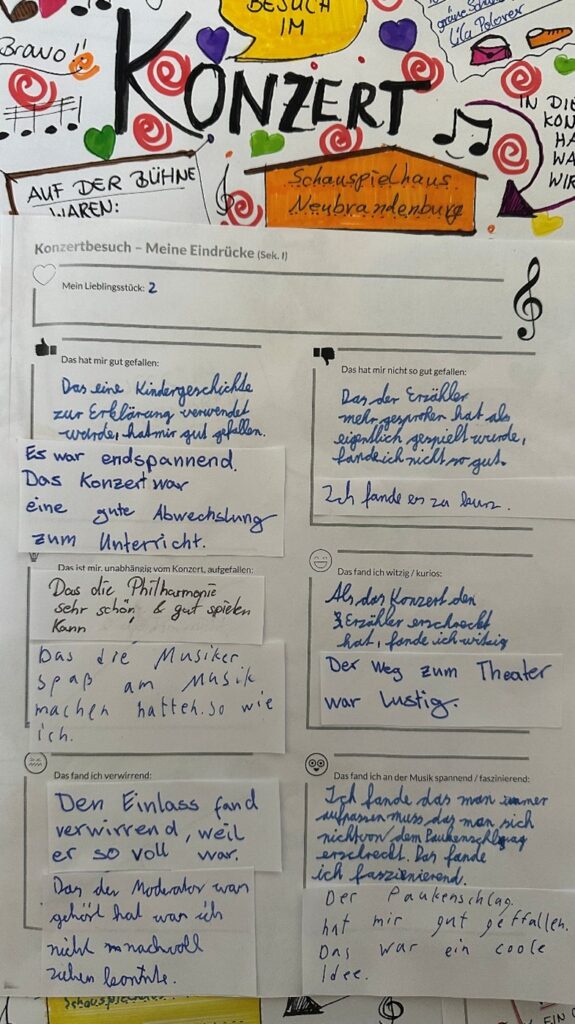 BESUCH
IM
KONZERT
Bravo!!
Lila Polover
IN DIE
KON
HA
WA
WIR
AUF DER BÜHNE
WAREN:
Schauspielhaus
Neubrandenburg
Konzertbesuch – Meine Eindrücke (Sek. I)
Mein Lieblingsstück: 2
Das hat mir gut gefallen:
Das eine Kindergeschichte
zur Erklärung verwendet
wurde, hat mir gut gefallen.
Es war endspannend.
Das Konzert war
eine gute Abwechslung
zum Unterricht.
Das hat mir nicht so gut gefallen:
Das der Erzähler
mehr gesprohen hat als
eigentlich gespielt wurde,
fande ich nicht so gut.
Ich fande es zu kurz.
Das ist mir, unabhängig vom Konzert, aufgefallen:
Das die Philharmonie
sehr schön & gut spielen
kann
Das die Musiker
spaß am Musik
machen hatten. so wie
ich.
Das fand ich witzig / kurios:
Als das Konzert den
Erzähler erschreckt
hat, fande ich witzig
Der Weg zum Theater
war lustig.
Das fand ich verwirrend:
Den Einlass fand
verwirrend, weil
er so voll war.
Das der Moderator was
gehört hat was ich
nicht nachvoll
ziehen konnte.
Das fand ich an der Musik spannend / faszinierend:
Ich fande das man immer
aufpassen muss das man sich
nicht von dem Paukenschlag
erschreckt. Das fande
ich faszienierend.
Der Paukenschlag
hat mir gut geffallen.
Das war ein coole
Idee.